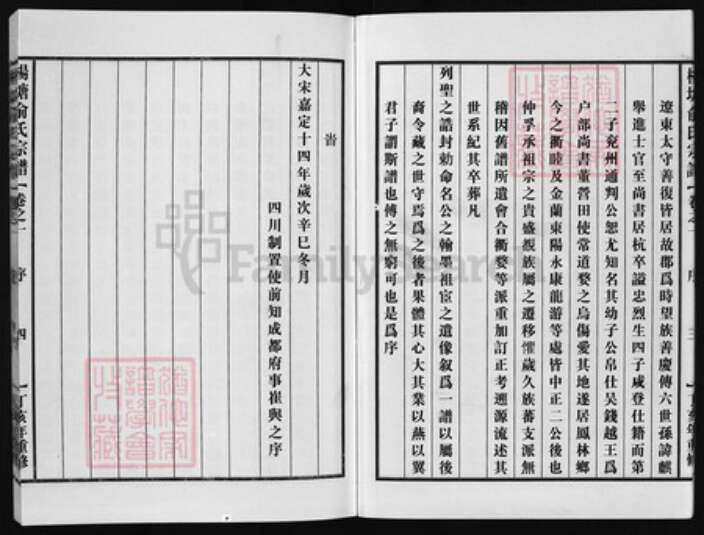 遼東太守善復皆居故郡爲時望族善慶傳六世孫諱麒
舉進士官至尚書居杭卒謚忠烈生四子咸登仕籍而第
二子兗州通判公恕尤知名其幼子公帛仕吴錢越王爲
户部尚書董營田使常道婺之烏傷愛其地遂居鳳林鄉
今之衢睦及金蘭東陽永康龍游等處皆中正二公後也
仲孚承祖宗之貴盛親族屬之遷移懼歲久族蕃支派無
稽因舊譜所遺會合衢婺等派重加訂正考遡源流述其
世系紀其卒葬凡
列聖之誥封勅命名公之翰墨祖宦之遺像叙爲一譜以屬後
裔令藏之世守焉爲之後者果體其心大其業以燕以翼
君子謂斯譜也傳之無窮可也是爲序
序
三
大宋嘉定十四年歲次辛巳冬月
四川制置使前知成都府事崔與之序
楊塘俞氏宗譜
卷之一
序
四
丁亥年重修
FamilySearch